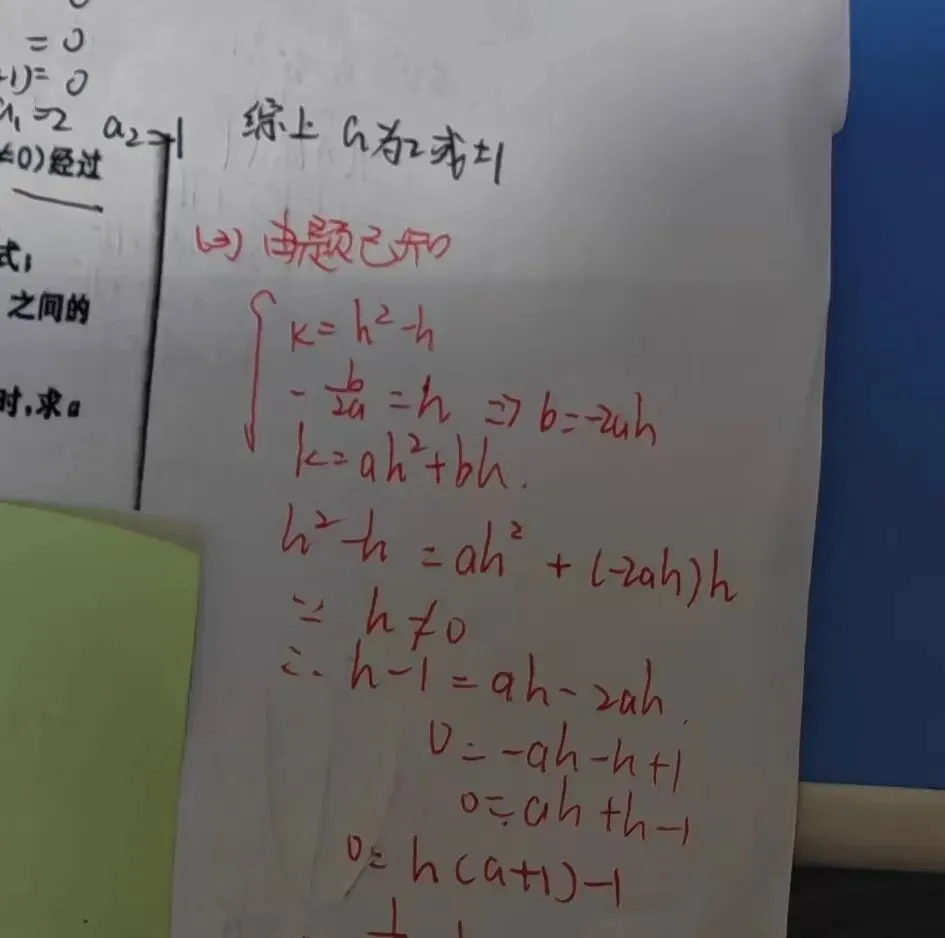 = 0
+1)= 0
a₁=2 a₂=1 综上 a为2或±1
≠0)经过
式;
之间的
时,求a
(3) 由题已知
k=h²-h
-b/2a=h ⇒ b=-2ah
k=ah²+bh.
h²-h=ah²+(-2ah)h
∵ h≠0
∴ h-1=ah-2ah.
0=-ah-h+1
0=ah+h-1
0=h(a+1)-1